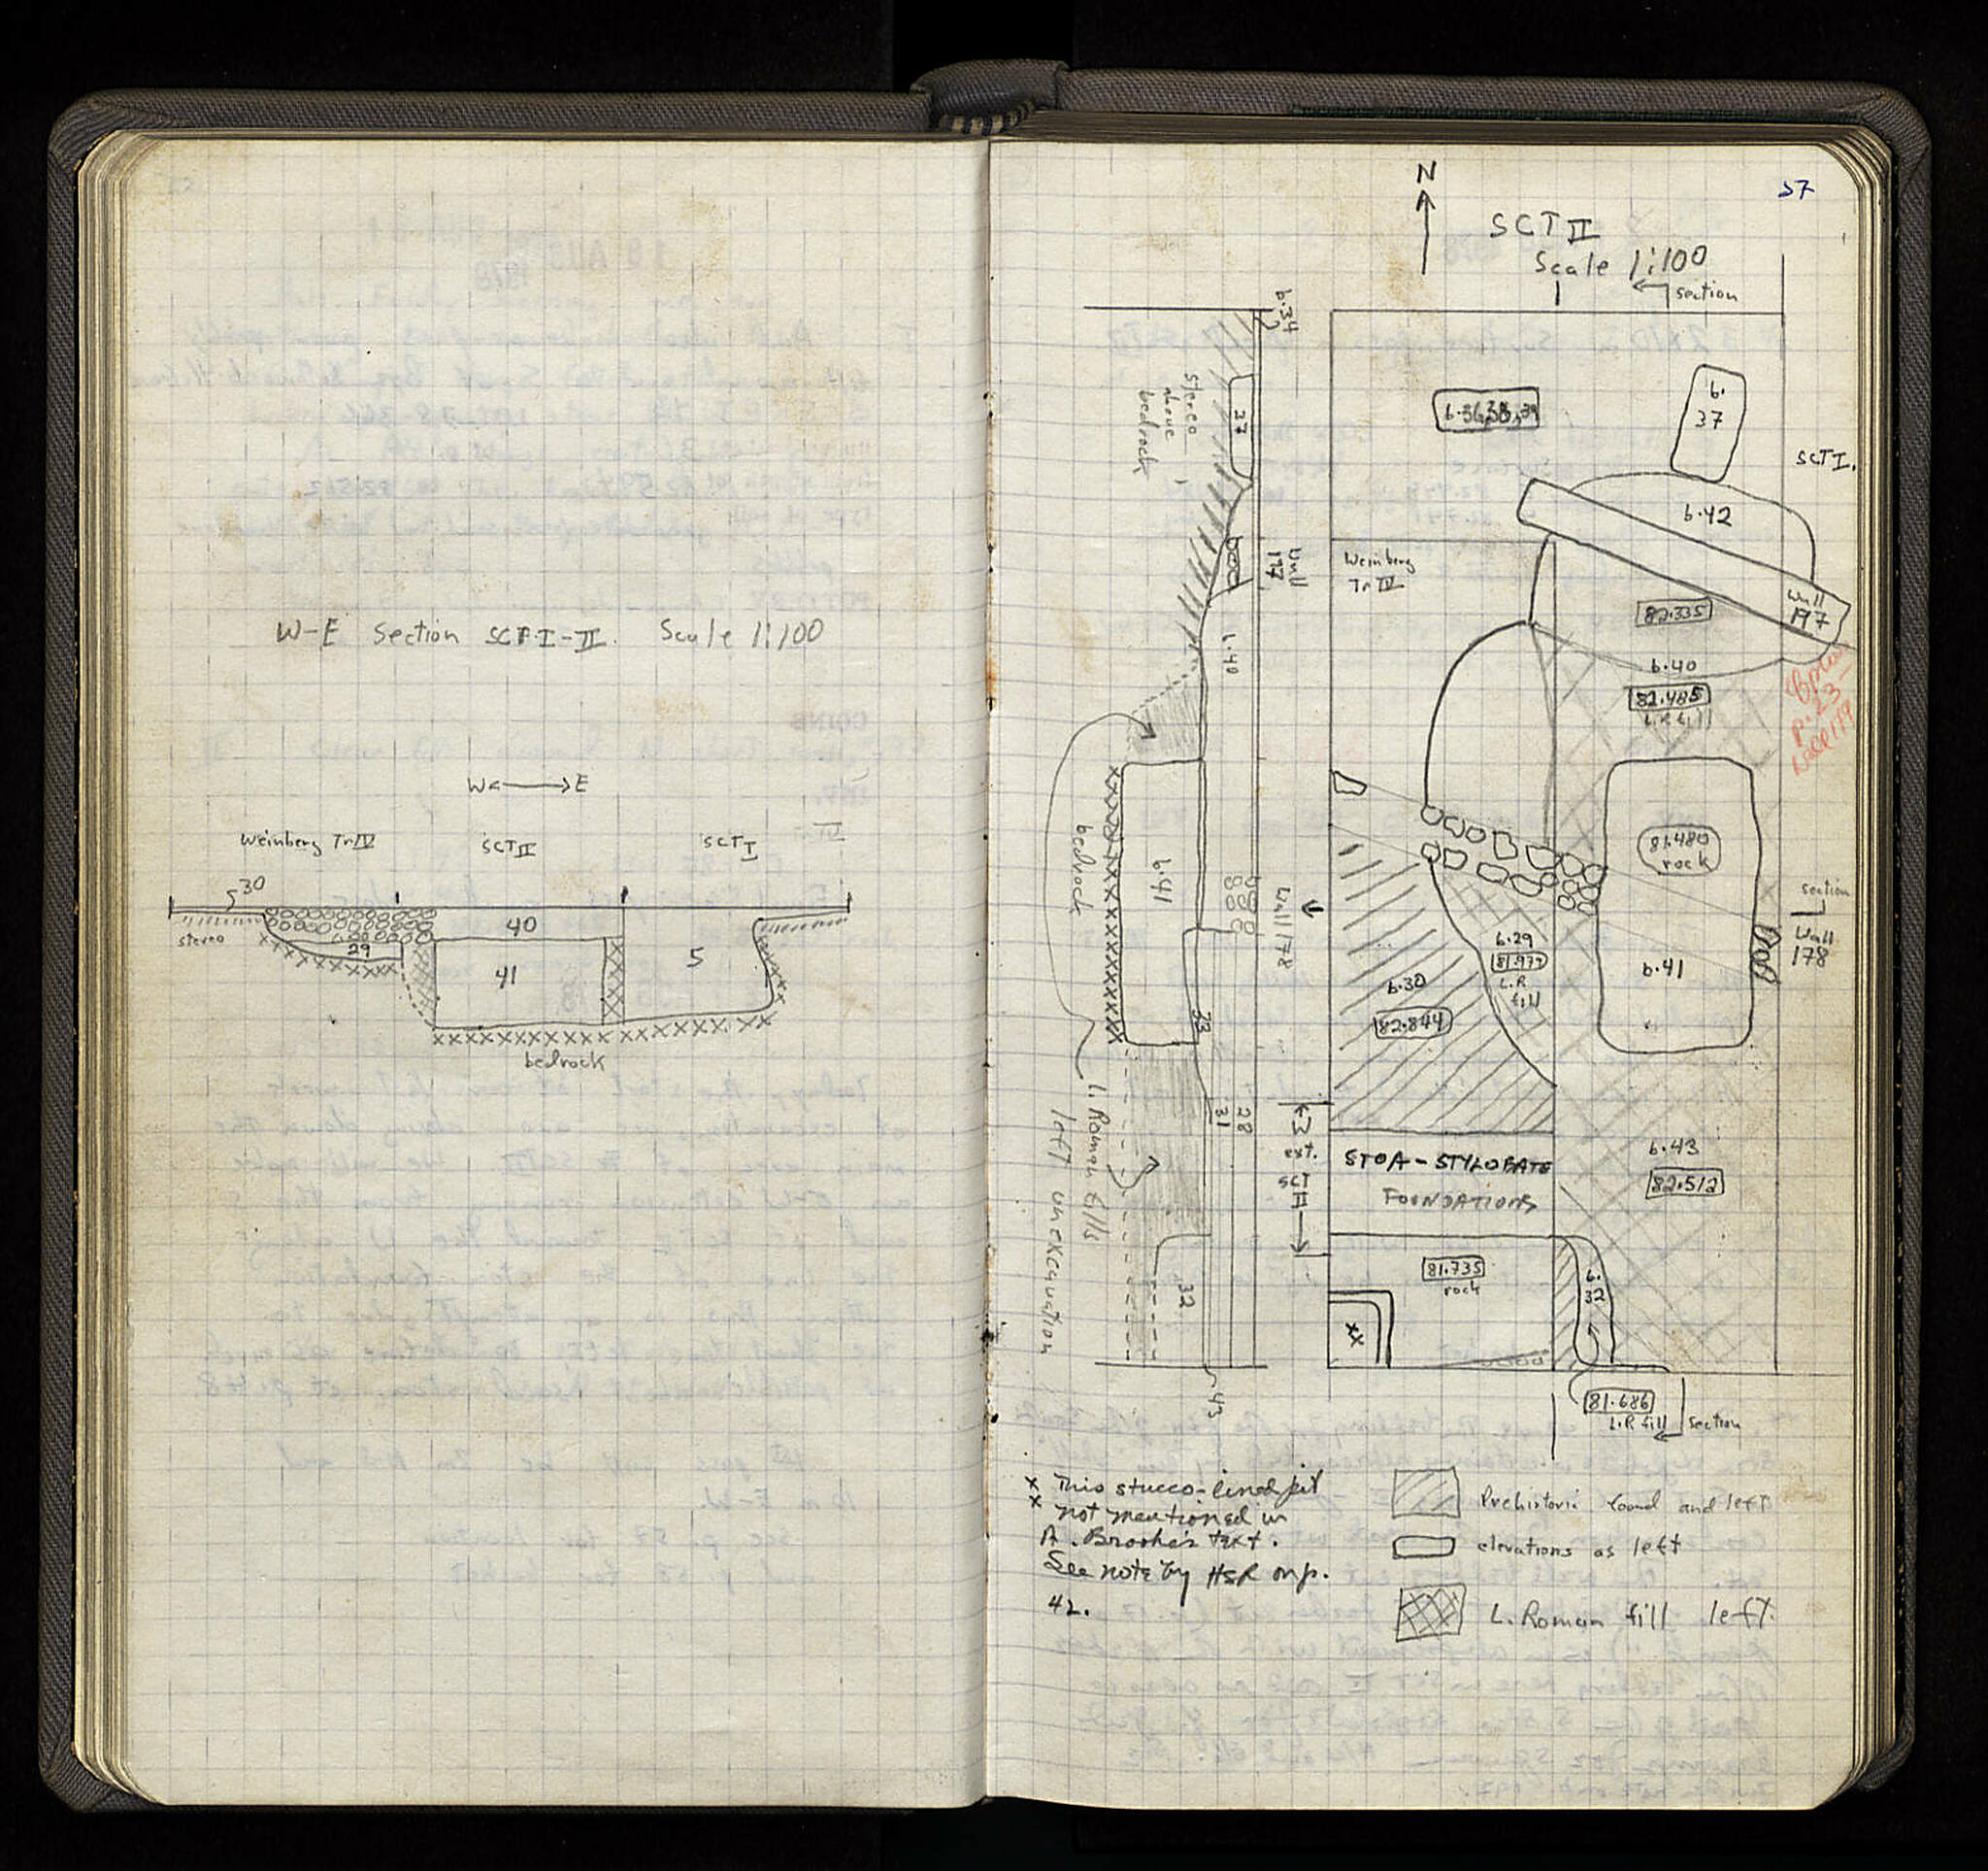 W-E Section SCT I-II. Scale 1:100
W E
Weinberg Tr IV
SCT II
SCT I
30
stereo
29
40
41
5
bedrock
57
N
SCT II
Scale 1:100
section
b.34
37
stereo
above
bedrock
Wall
197
b.40
b.41
bedrock
Wall 178
33
28
31
32
43
L. Roman fills
left unexcavation
b.36,38,39
b.
37
SCT I.
b.42
Weinberg
Tr IV
Wall
197
82.335
b.40
82.485
L.R fill
p. 23
81.480
rock
section
Wall
178
b.29
81.977
L.R
fill
b.41
b.30
82.844
ext.
SCT
II
STOA-STYLOBATE
FOUNDATIONS
b.43
82.512
81.735
rock
b.
32
xx
81.686
L.R fill
section
x x This stucco-lined pit
not mentioned in
A. Brooke's text.
See note by HSR on p.
42.
Prehistoric found and left
elevations as left
L. Roman fill left.